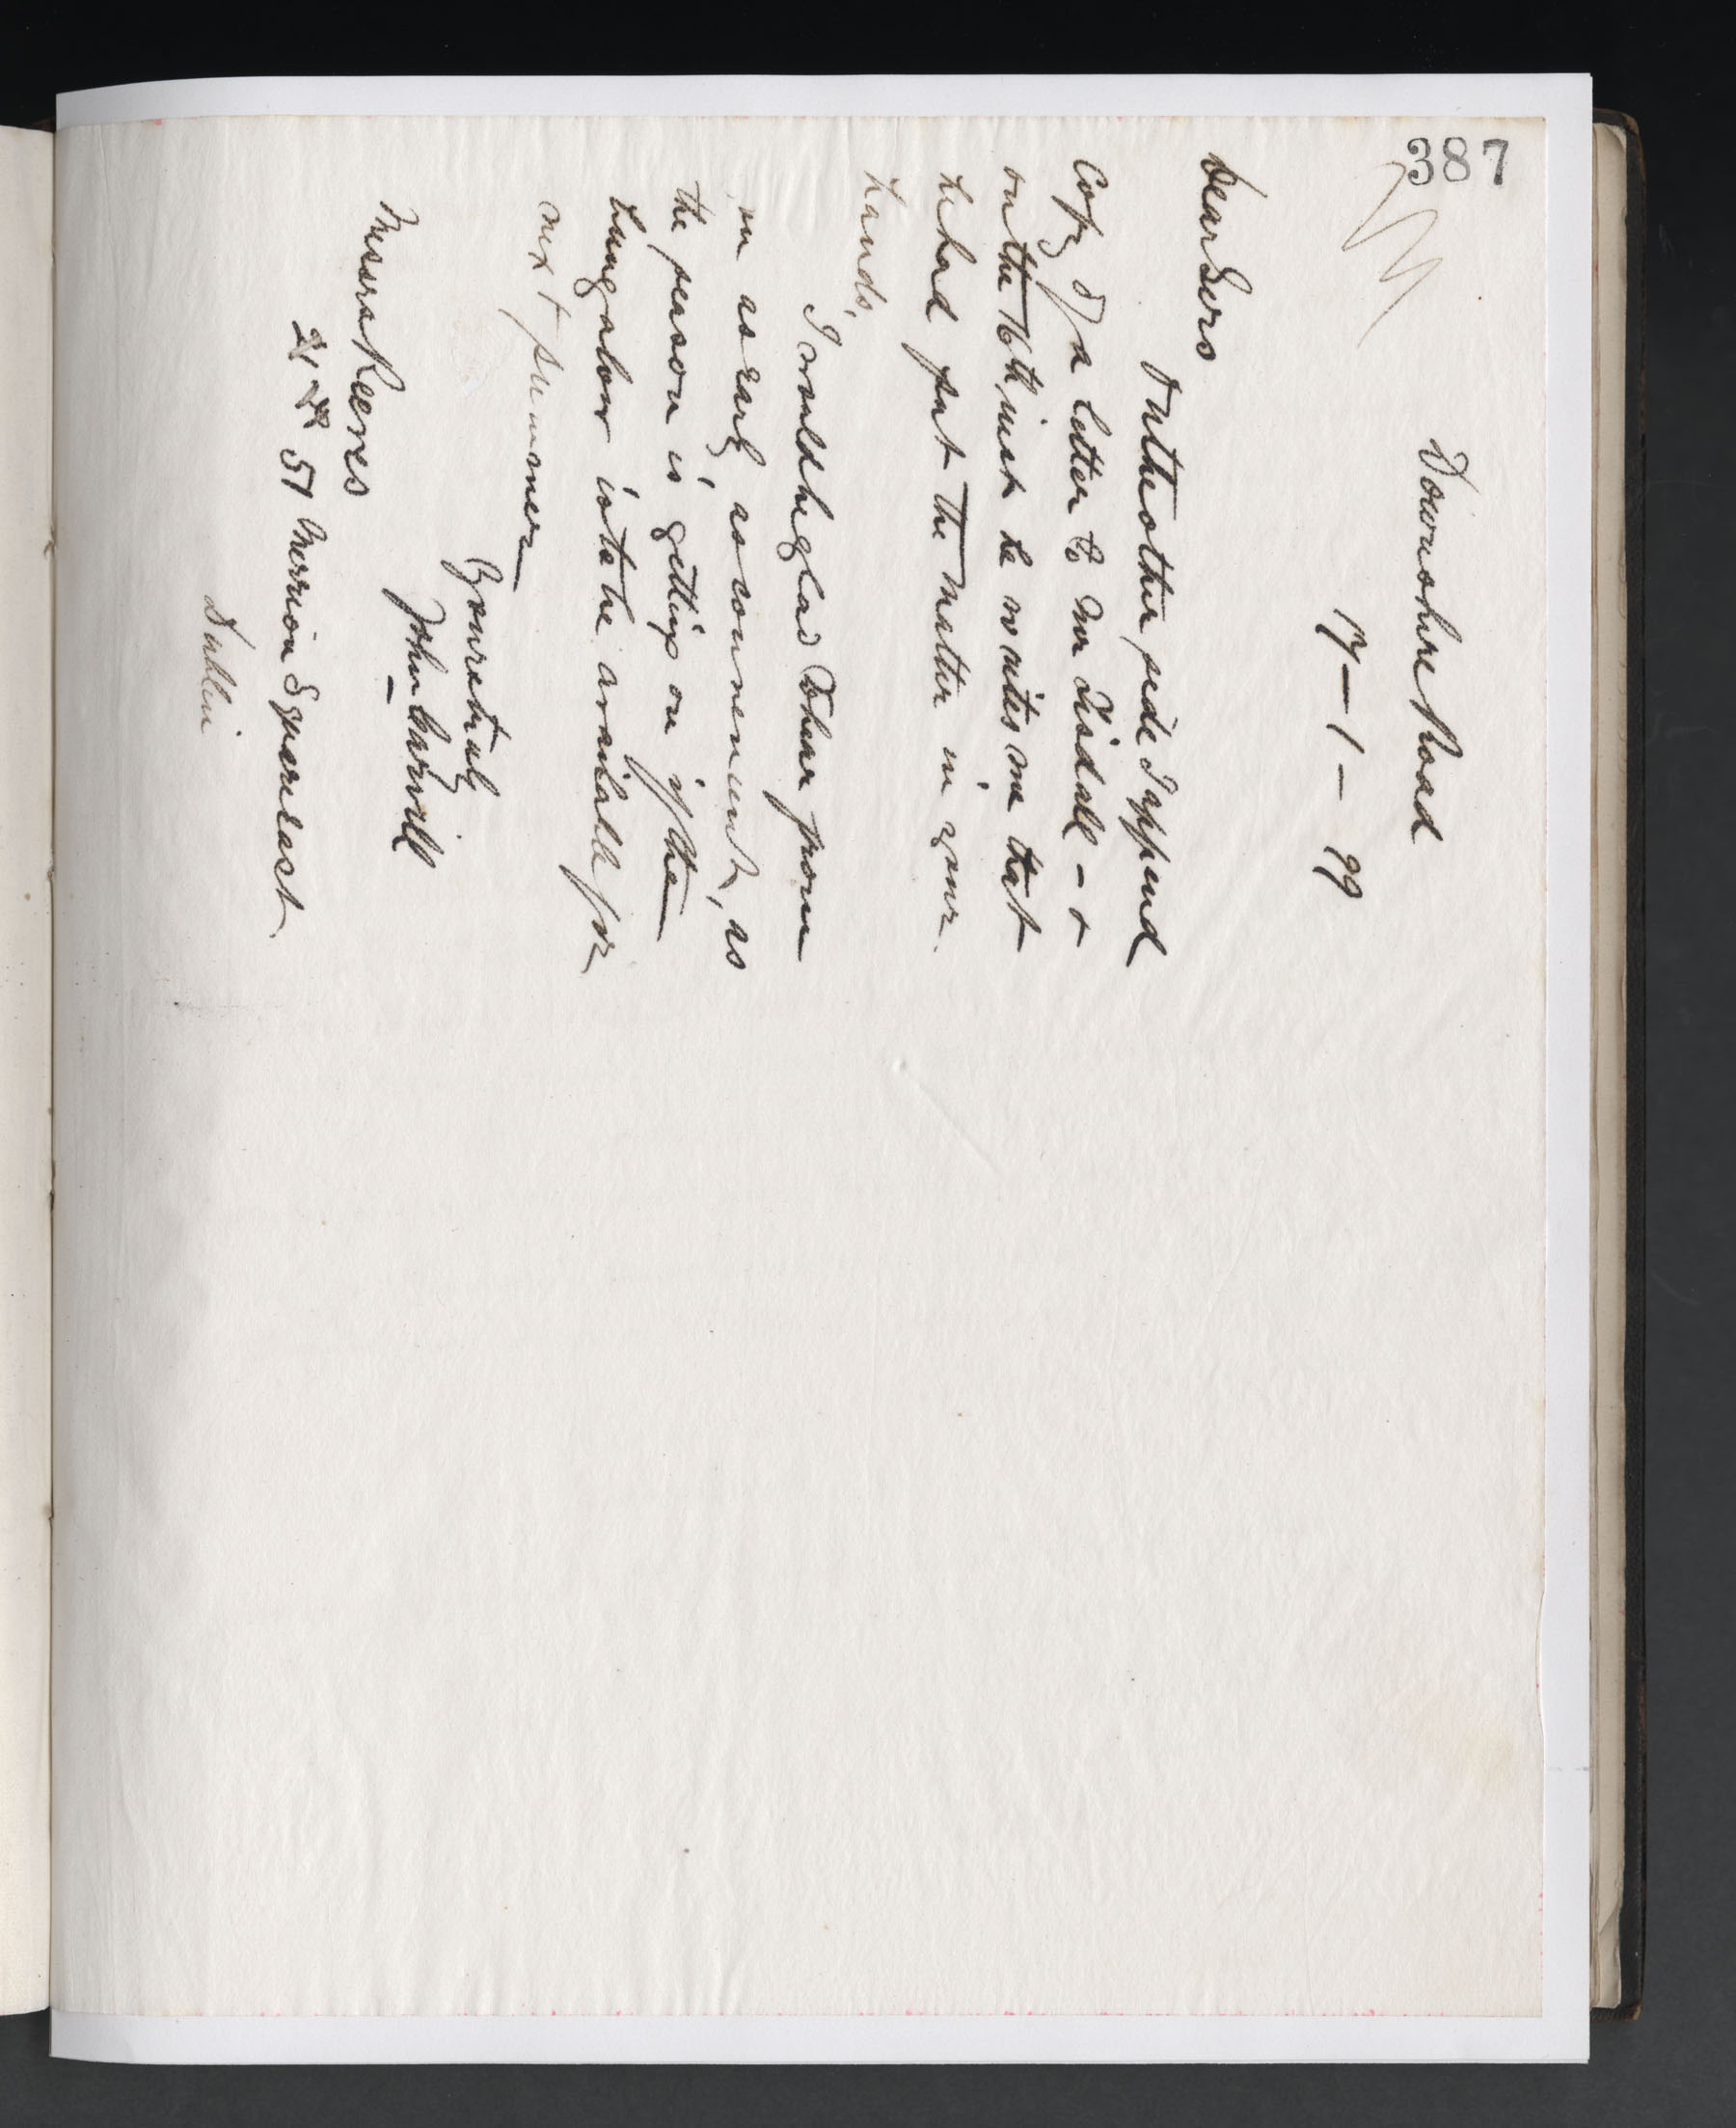 387
Downshire Road
17 - 1 - 99
Dear Sirs
On the other side I append
Copy of a letter to Mr Tisdall - &
on the 16th inst he writes me that
he had put the matter in your
hands.
I would be glad to hear from
you as early as convenient, as
the season is getting on if the
bungalow is to be available for
next summer
Yours truly
John Carvill
Messrs Reeves
51 Merrion Square East
Dublin